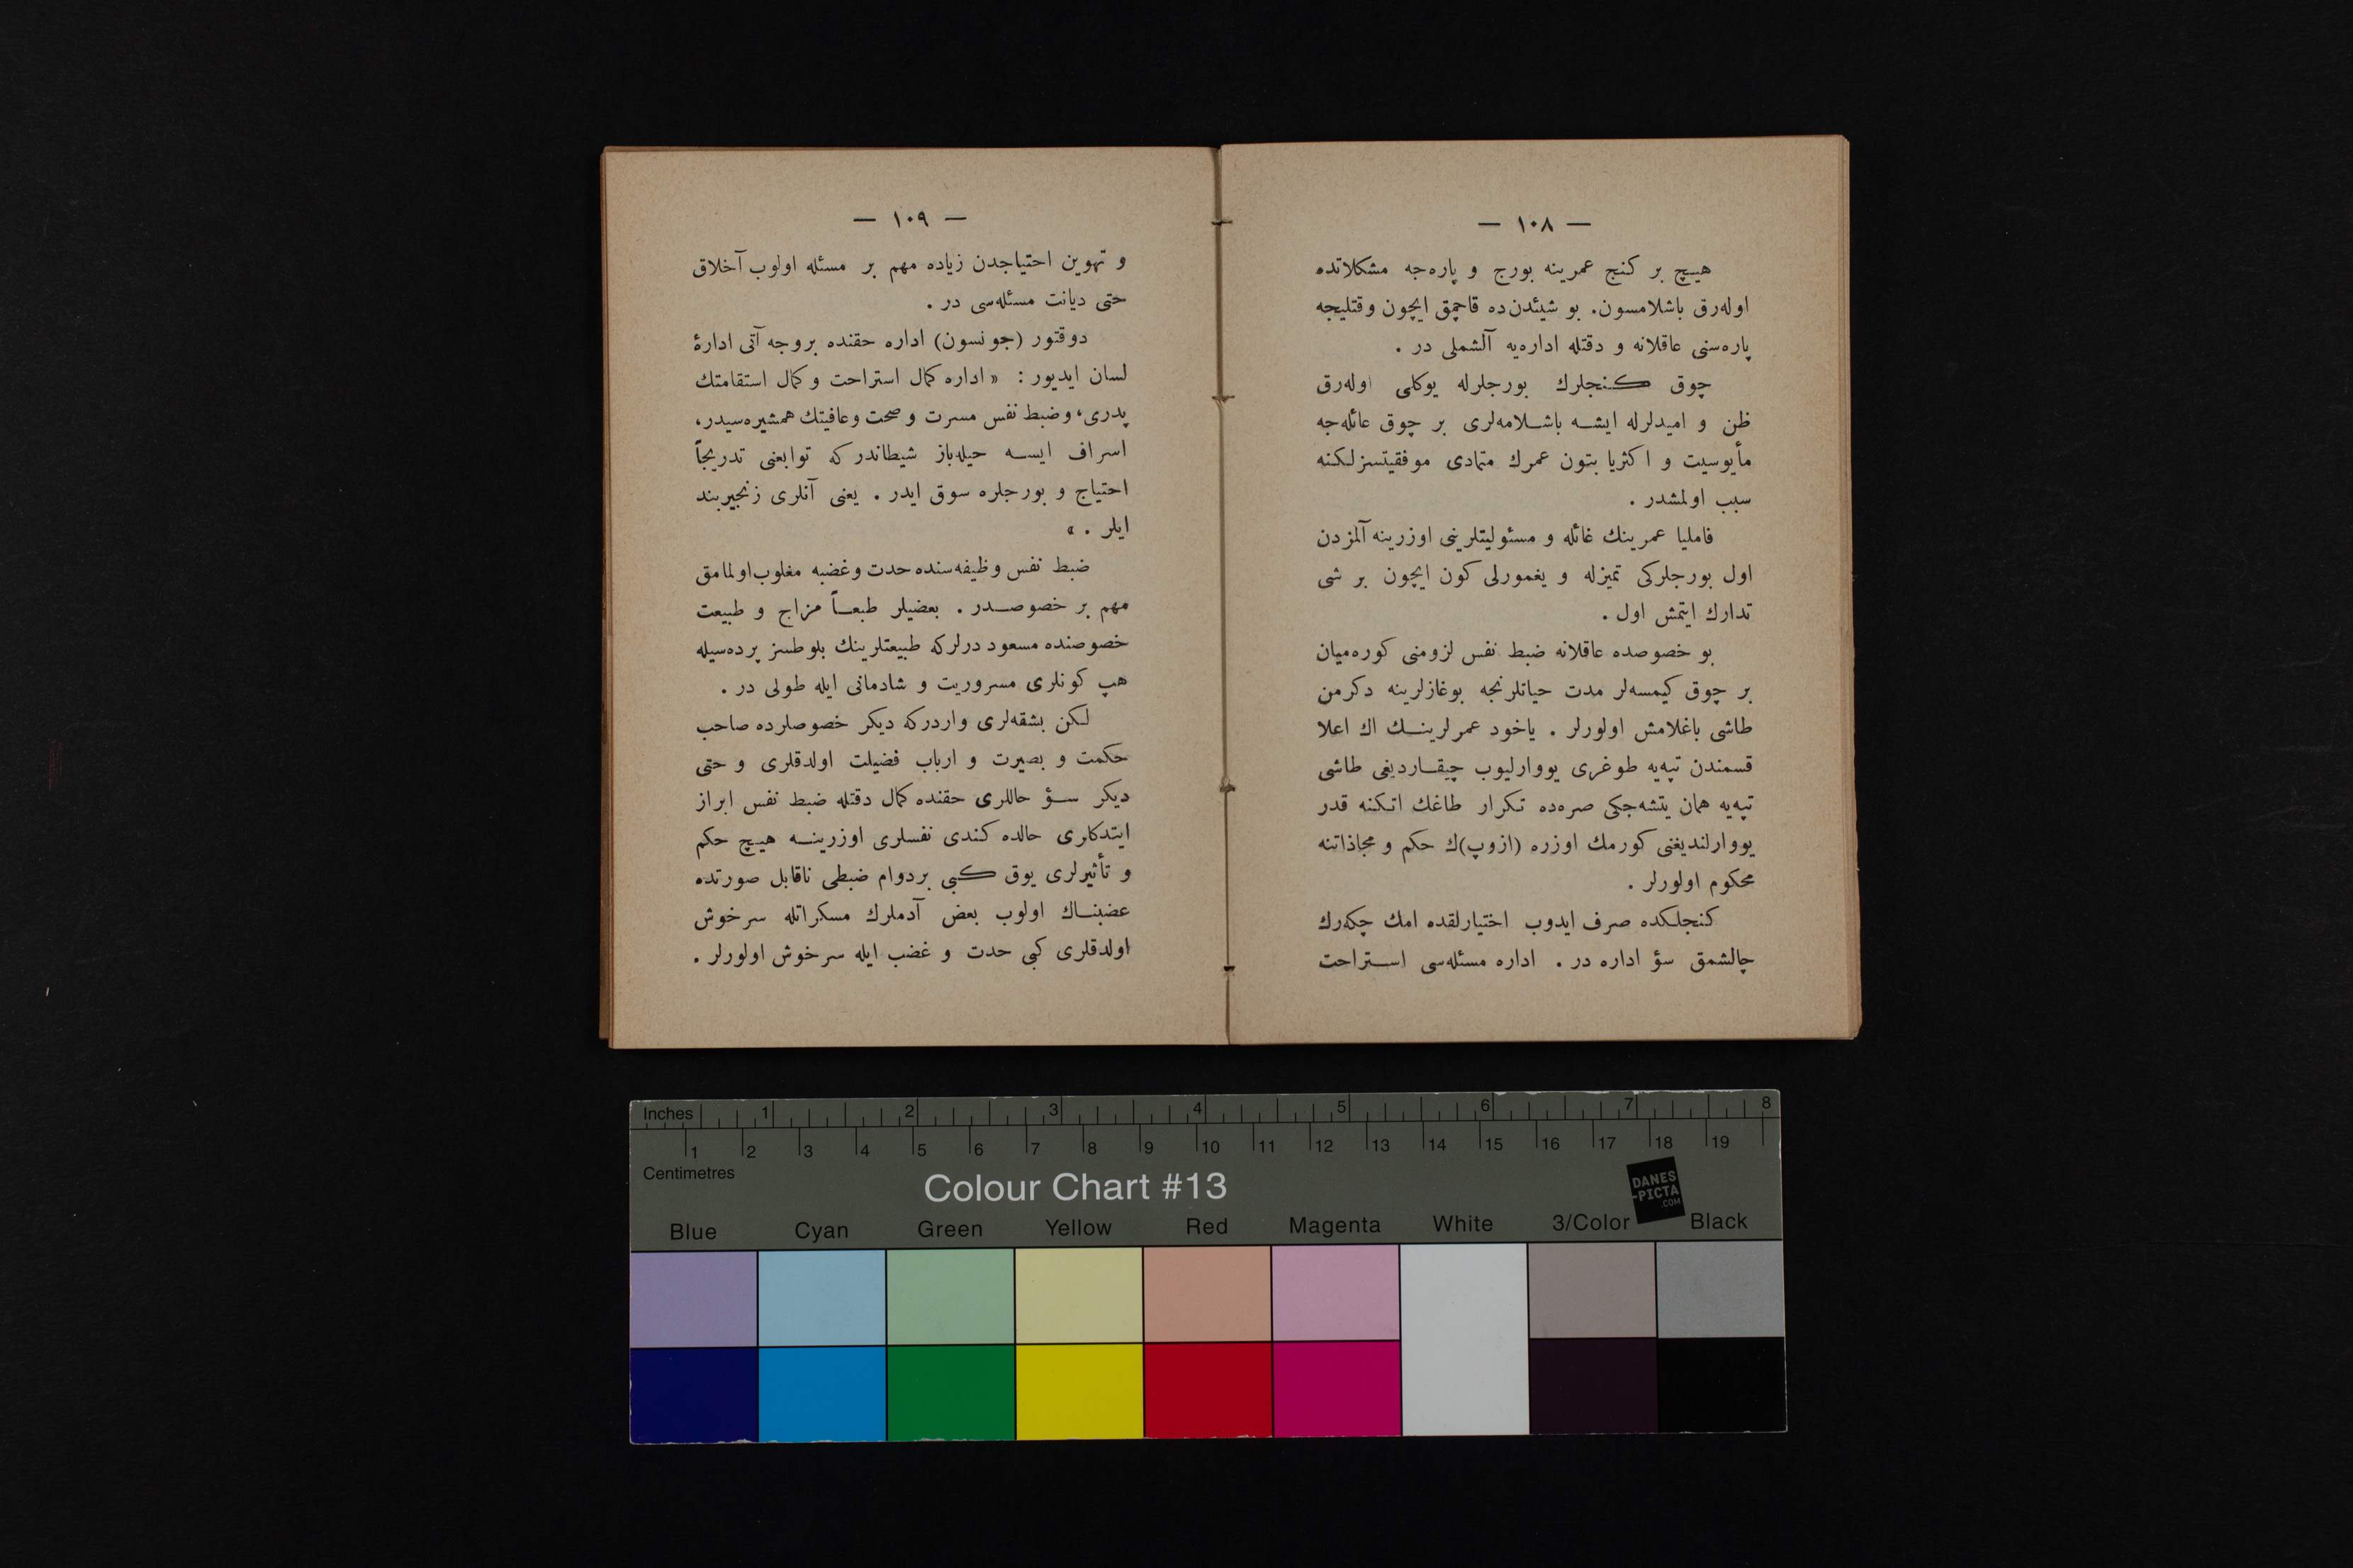 — ١٠٨ —
هيچ بر كنج عمرينه بورج و پاره‌جه مشكلاتده
اوله‌رق باشلامسون. بو شيئدن‌ده قاچمق ايچون وقتليجه
پاره‌سنى عاقلانه و دقتله اداره‌يه آلشملى در .
چوق كنجلرك بورجلرله يوكلى اوله‌رق
ظن و اميدلرله ايشه باشلامه‌لرى بر چوق عائله‌جه
مأيوسيت و اكثريا بتون عمرك متمادى موفقيتسزلكنه
سبب اولمشدر .
فامليا عمرينك غائله و مسئوليتلرينى اوزرينه آلمزدن
اول بورجلركى تميزله و يغمورلى كون ايچون بر شى
تدارك ايتمش اول .
بو خصوصده عاقلانه ضبط نفس لزومنى كوره‌ميان
بر چوق كيمسه‌لر مدت حياتلرنجه بوغازلرينه دكرمن
طاشى باغلامش اولورلر . ياخود عمرلرينك اك اعلا
قسمندن تپه‌يه طوغرى يووارليوب چيقارديغى طاشى
تپه‌يه همان يتشه‌جكى صره‌ده تكرار طاغك اتكنه قدر
يووارلنديغنى كورمك اوزره (ازوپ)ك حكم و مجاذاتنه
محكوم اولورلر .
كنجلكده صرف ايدوب اختيارلقده امك چكه‌رك
چالشمق سؤ اداره در . اداره مسئله‌سى استراحت
— ١٠٩ —
و تهوين احتياجدن زياده مهم بر مسئله اولوب آخلاق
حتى ديانت مسئله‌سى در .
دوقتور (جونسون) اداره حقنده بروجه آتى ادارۀ
لسان ايديور : « اداره كمال استراحت و كمال استقامتك
پدرى، وضبط نفس مسرت و صحت وعافيتك همشيره‌سيدر،
اسراف ايسه حيله‌باز شيطاندركه توابعنى تدريجاً
احتياج و بورجلره سوق ايدر . يعنى آنلرى زنجيربند
ايلر . »
ضبط نفس وظيفه‌سنده حدت وغضبه مغلوب‌اولمامق
مهم بر خصوصدر . بعضيلر طبعاً مزاج و طبيعت
خصوصنده مسعود درلركه طبيعتلرينك بلوطسز پرده‌سيله
هپ كونلرى مسروريت و شادمانى ايله طولى در .
لكن بشقه‌لرى واردركه ديكر خصوصلرده صاحب
حكمت و بصيرت و ارباب فضيلت اولدقلرى و حتى
ديكر سؤ حاللرى حقنده كمال دقتله ضبط نفس ابراز
ايتدكلرى حالده كندى نفسلرى اوزرينه هيچ حكم
و تأثيرلرى يوق كبى بردوام ضبطى ناقابل صورتده
عضبناك اولوب بعض آدملرك مسكراتله سرخوش
اولدقلرى كبى حدت و غضب ايله سرخوش اولورلر .
Inches 1 2 3 4 5 6 7 8
1 2 3 4 5 6 7 8 9 10 11 12 13 14 15 16 17 18 19
Centimetres
Colour Chart #13
DANES
-PICTA
.COM
Blue Cyan Green Yellow Red Magenta White 3/Color Black